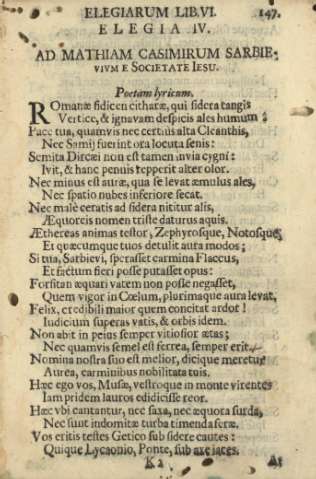 ELEGIARUM LIB.VI. 147.
ELEGIA IV.
AD MATHIAM CASIMIRUM SARBIE-
VIUM E SOCIETATE IESU.
Poetam lyricum.
ROmanæ fidicen citharæ, qui sidera tangis
Vertice, & ignavam despicis ales humum:
Pace tua, quamvis nec certius alta Cleanthis,
Nec Samij fuerint ora locuta senis:
Semita Dircæi non est tamen invia cygni:
Ivit, & hanc penuis repperit alter olor.
Nec minus est auræ, qua se levat æmulus ales,
Nec spatio nubes inferiore secat.
Nec male ceratis ad sidera nititur alis,
Æquoreis nomen triste daturus aquis.
Æthereas animas testor, Zephyrosque, Notosque,
Et quæcumque tuos detulit aura modos;
Si tua, Sarbievi, sperasset carmina Flaccus,
Et factum fieri posse putasset opus:
Forsitan æquari vatem non posse negasset,
Quem vigor in Cœlum, plurimaque aura levat,
Felix, credibili maior quem concitat ardor!
Iudicium superas vatis, & orbis idem.
Non abit in peius semper vitiosior ætas;
Nec quamvis semel est ferrea, semper erit.
Nomina nostra suo est melior, dicique meretur
Aurea, carminibus nobilitata tuis.
Hæc ego vos, Musæ, vestroque in monte virentes
Iam pridem lauros edidicisse reor.
Hæc vbi cantantur, nec saxa, nec æquora surda,
Nec sunt indomitæ turba timenda feræ.
Vos eritis testes Getico sub sidere cautes:
Quique Lycaonio, Ponte, sub axe iaces.
K 2 At